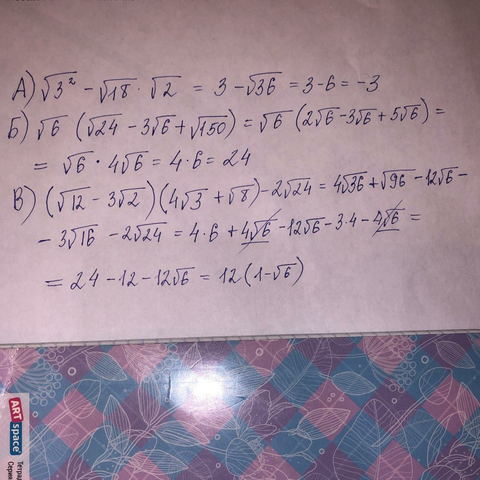 А) √3² - √18 · √2 = 3 - √36 = 3-6 = -3
Б) √6 (√24 - 3√6 + √150) = √6 (2√6 - 3√6 + 5√6) =
= √6 · 4√6 = 4·6 = 24
В) (√12 - 3√2)(4√3 + √8) - 2√24 = 4√36 + √96 - 12√6 -
- 3√16 - 2√24 = 4·6 + 4√6 - 12√6 - 3·4 - 4√6 =
= 24 - 12 - 12√6 = 12(1-√6)
ART space
Тетрадь
Серия